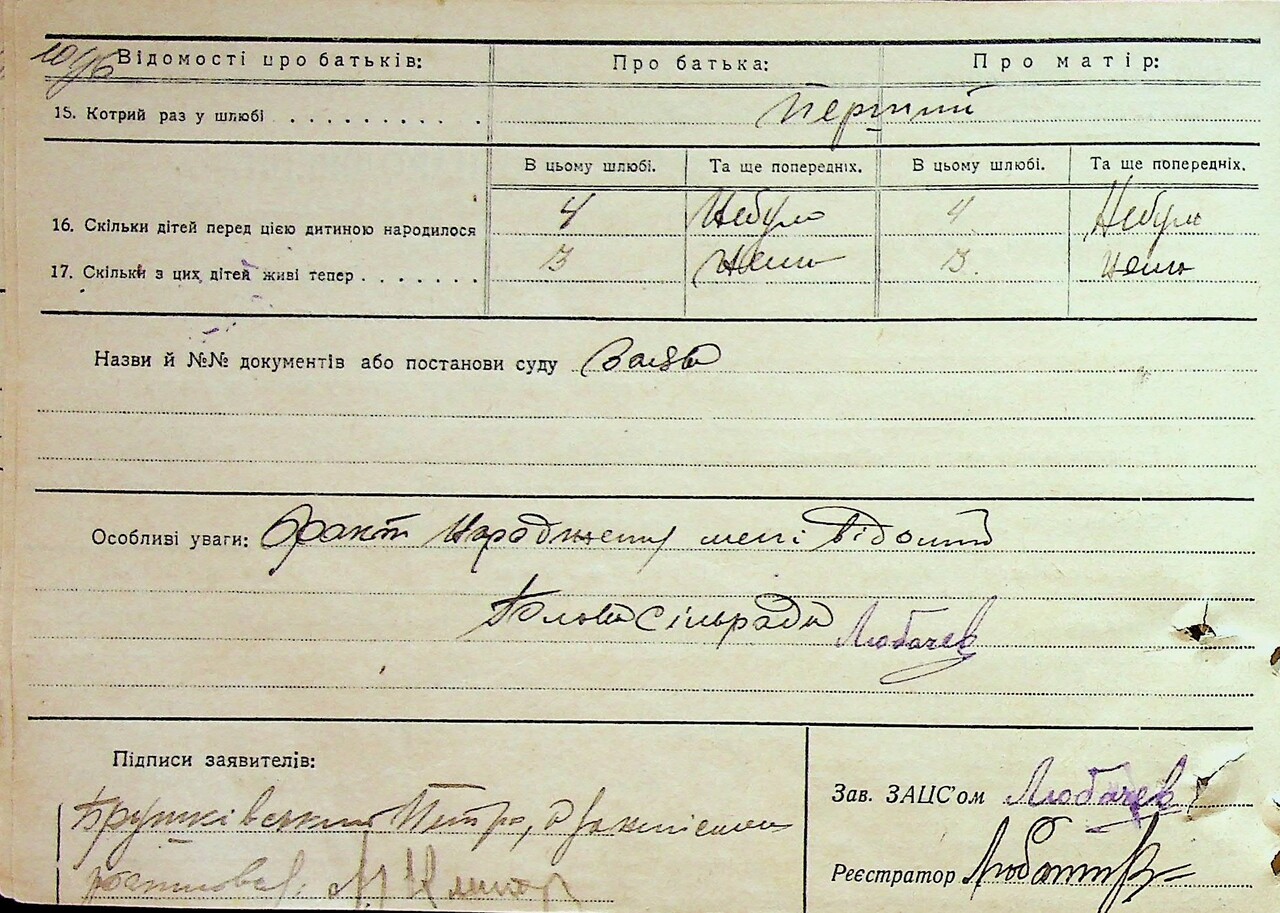 1096
Відомості про батьків: Про батька: Про матір:
15. Котрий раз у шлюбі . . . . . . . . . . Перший
В цьому шлюбі. Та ще попередніх. В цьому шлюбі. Та ще попередніх.
16. Скільки дітей перед цією дитиною народилося 4 Небуло 4 Небуло
17. Скільки з цих дітей живі тепер . . . . . . . 3 Нема 3. Нема
Назви й №№ документів або постанови суду Заява
Особливі уваги: Факт народження мені відомий
Голова Сільради Любачев
Підписи заявителів:
Зав. ЗАЦС'ом Любачев
Петро,
Реєстратор